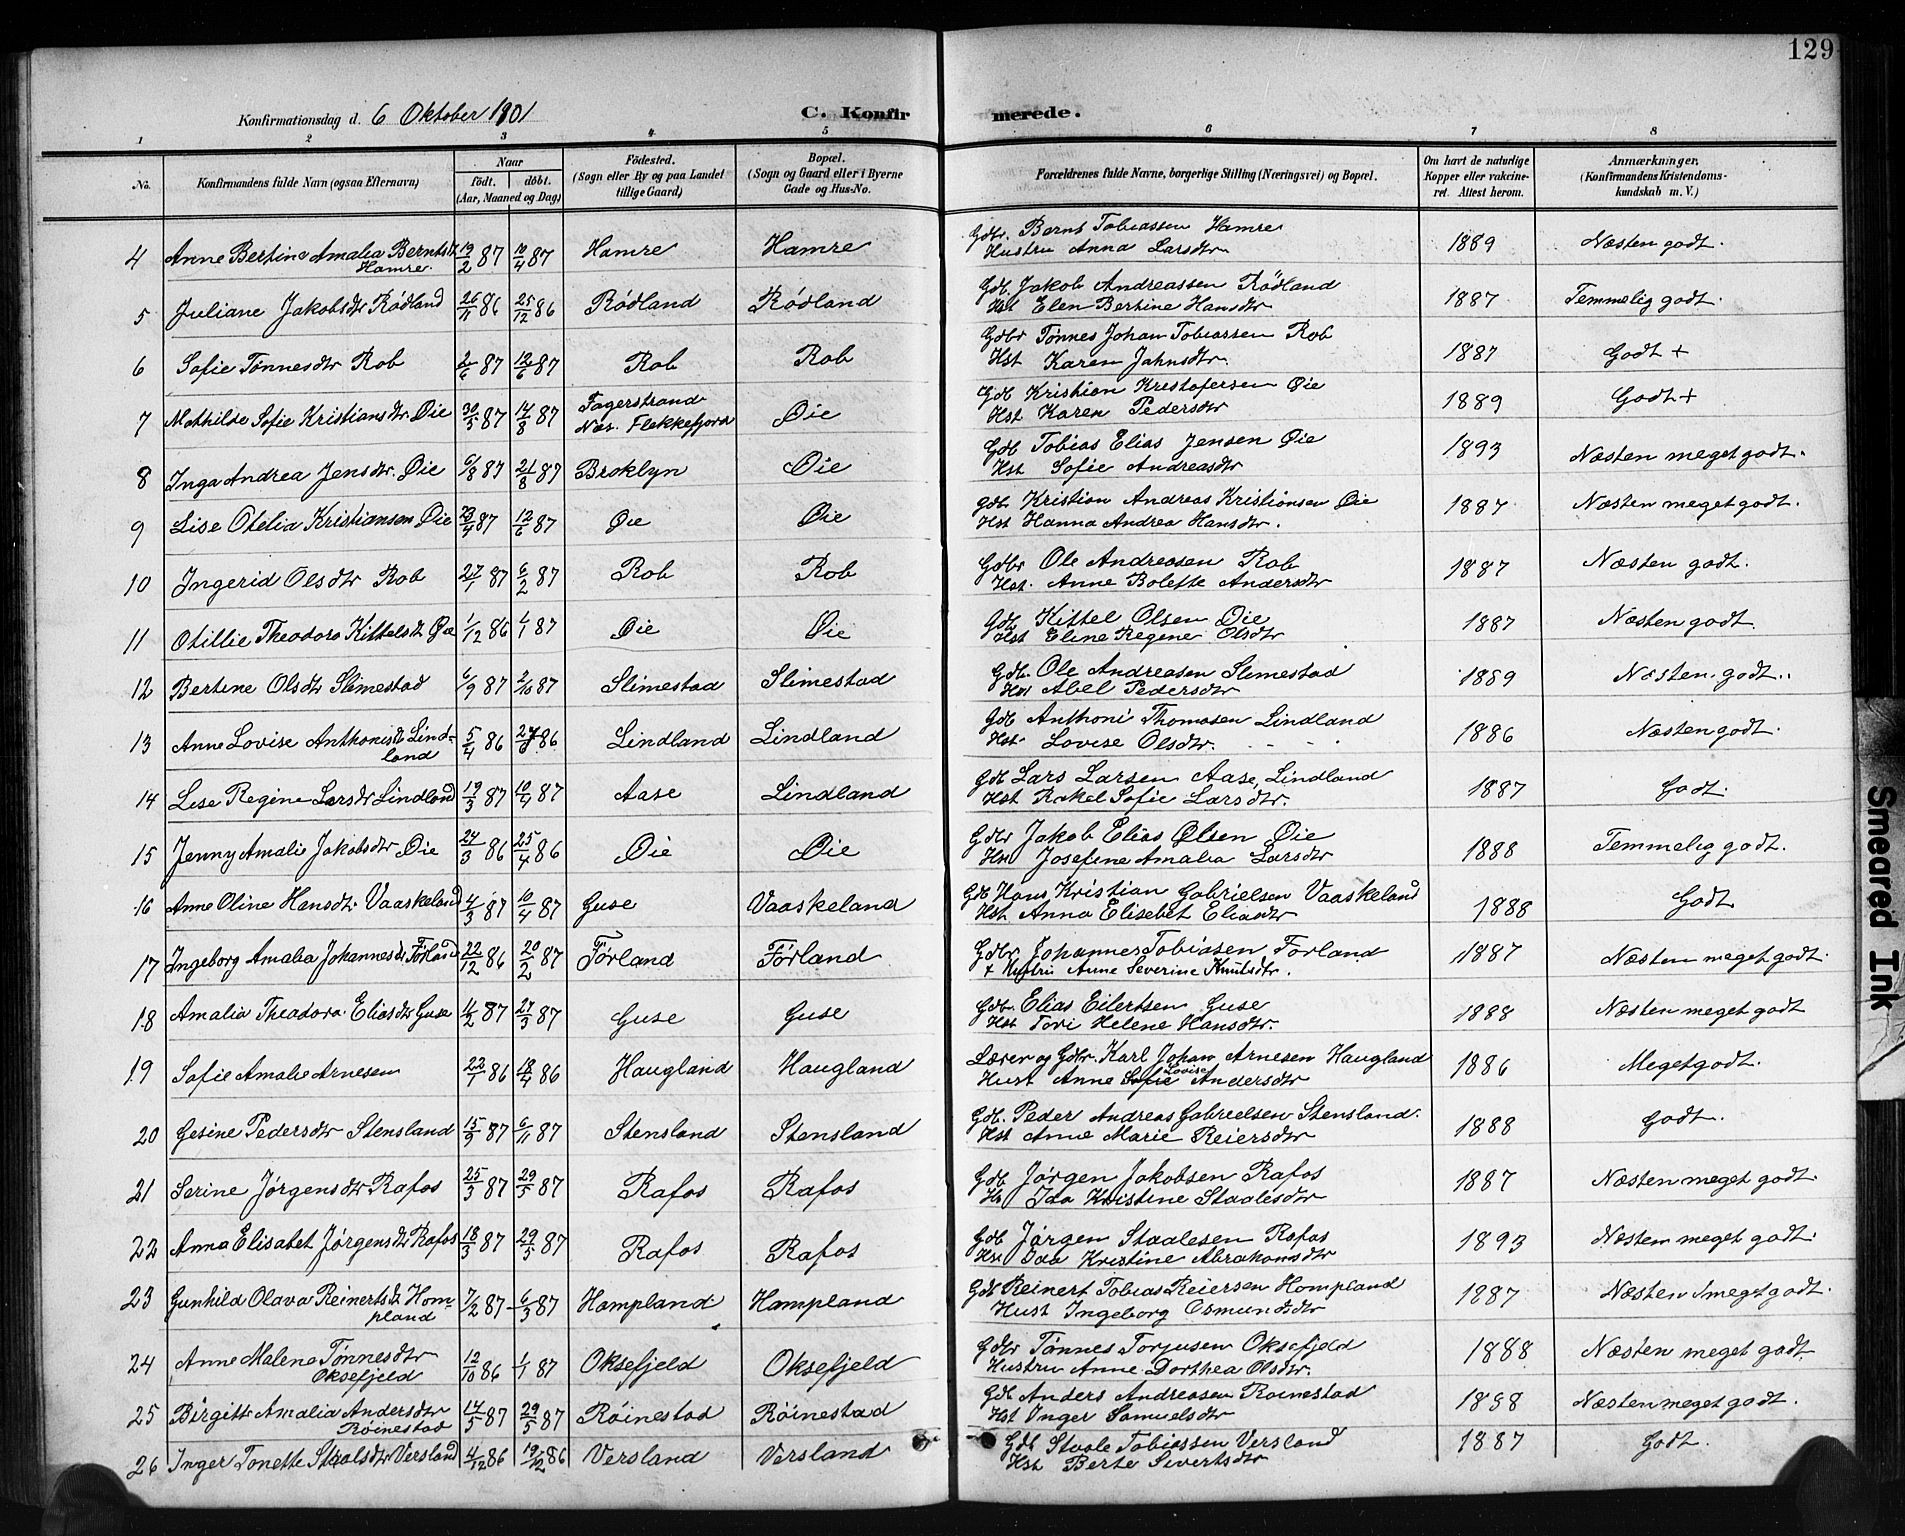 129
Konfirmationsdag d. 6 Oktober 1901 C. Konfirmerede.
1 2 3 4 5 6 7 8
No. Konfirmandens fulde Navn (ogsaa Efternavn) Naar födt. döbt. (Aar, Maaned og Dag) Födested. (Sogn eller By og paa Landet tillige Gaard.) Bopæl. (Sogn og Gaard eller i Byerne Gade og Hus-No. Forældrenes fulde Navne, borgerlige Stilling (Næringsvei) og Bopæl. Om havt de naturlige Kopper eller vakcineret. Attest herom. Anmærkninger, (Konfirmandens Kristendomskundskab m. V.)
4 Anne Bertine Amalia Berntsdt Hamre. 19/2 87 10/4 87 Hamre Hamre Gdbr. Bernt Tobiassen Hamre
Hustru Anna Larsdtr 1889 Næsten godt.
5 Juliane Jakobsdtr Rödland 26/11 86 25/12 86 Rödland Rödland Gdb. Jakob Andreassen Rödland
Hst Elen Bertine Hansdtr 1887 Temmelig godt.
6 Sofie Tönnesdtr Rob 2/6 87 12/6 87 Rob Rob Gdbr Tønnes Johan Tobiassen Rob
Hst Karen Jahnsdtr. 1887 Godt +
7 Mathilde Sofie Kristiansdtr Øie 30/5 87 14/8 87 Fagerstrand Næs. Flekkefjord Øie Gdb Kristian Kristofersen Øie
Hst. Karen Pedersdtr 1889 Godt +
8 Inga Andrea Jensdtr. Øie 6/8 87 21/8 87 Broklyn Øie Gdb Tobias Elias Jensen Øie
Hst Sofie Andreasdtr 1893 Næsten meget godt.
9 Lise Otelia Kristiansen Øie 23/4 87 12/6 87 Øie Øie Gdb. Kristian Andreas Kristiansen Øie
Hst Hanna Andrea Hansdtr. 1887 Næsten meget godt.
10 Ingerid Olsdtr Rob 27/1 87 6/2 87 Rob Rob Gdbr Ole Andreasen Rob
Hst. Anne Bolette Andersdtr 1887 Næsten godt.
11 Otillie Theodora Kittelsdt Øie 1/12 86 1/1 87 Øie Øie Gdb Kittel Olsen Øie
Hst Eline Regine Olsdtr 1887 Næsten godt
12 Bertine Olsdtr Slimestad 6/9 87 2/10 87 Slimestad Slimestad Gdb. Ole Andreasen Slimestad
Hst Abel Pedersdtr 1889 Næsten godt..
13 Anne Lovise Anthonisdt Lindland 5/4 86 86 Lindland Lindland Gdb Anthoni Thomasen Lindland
Hst. Lovise Olsdtr. 1886 Næsten godt.
14 Lise Regine Larsdtr Lindland 19/3 87 10/4 87 Aase Lindland Gdb Lars Larsen Aase, Lindland
Hst Rakel Sofie Larsdtr. 1887 Godt.
15 Jenny Amalie Jakobsdtr Øie 27/3 86 25/4 86 Øie Øie Gdbr Jakob Elias Olsen Øie
Hst Josefine Amalia Larsdtr 1888 Temmelig godt.
16 Anne Oline Hansdtr Vaaskeland 4/3 87 10/4 87 Guse Vaaskeland Gdb Hans Kristian Gabrielsen Vaaskeland
Hst. Anna Elisebet Eliasdtr 1888 Godt
17 Ingeborg Amalia Johannesdt Förland 22/12 86 20/2 87 Förland Förland Gdbr Johannes Tobiasen Förland
+ Hustru Anne Severine Knutsdtr. 1887 Næsten meget godt.
18 Amalia Theodora Eliasdtr Guse 11/2 87 27/3 87 Guse Guse Gdb. Elias Eilertsen Guse
Hst Tori Helene Hansdtr. 1888 Næsten meget godt
19 Sofie Amalie Arnesen 22/1 86 18/4 86 Haugland Haugland Lærer og Gdbr. Karl Johan Arnesen Haugland
Hust Anne Sofie Lovise Andersdtr 1886 Meget godt.
20 Gesine Pedersdtr Stensland 15/9 87 6/11 87 Stensland Stensland Gdb. Peder Andreas Gabrielsen Stensland.
Hst Anne Marie Reiersdtr 1888 Godt.
21 Serine Jørgensdtr Rafos 25/3 87 29/5 87 Rafos Rafos Gdb Jørgen Jakobsen Rafos
Hs Ida Kristine Staalesdtr 1887 Næsten meget godt
22 Anna Elisabet Jørgensdt Rafos 18/3 87 29/5 87 Rafos Rafos Gdb Jørgen Staalesen Rafos
Hst Ida Kristine Abrahamsdtr 1893 Næsten meget godt.
23 Gunhild Olava Reinertsdt Hompland 7/2 87 6/3 87 Hompland Hompland Gdb Reinert Tobias Reiersen Hompland
Hust Ingeborg Osmundsdtr 1887 Næsten meget godt.
24 Anne Malena Tønnesdtr Oksefjeld 12/10 86 1/1 87 Oksefjeld Oksefjeld Gdbr Tønnes Torjusen Oksefjeld
Hustru Anne Dorthea Olsdtr. 1888 Næsten meget godt.
25 Birgitte Amalia Andersdtr Röinestad 14/5 87 29/5 87 Röinestad Röinestad Gdb Anders Andreasen Roinestad
Hst Inger Samuelsdtr 1888 Næsten meget godt.
26 Inger Tonette Staalsdtr Versland 4/12 86 19/12 86 Versland Versland Gdb Staale Tobiassen Versland
Hst Berte Sivertsdtr 1887 Godt.
Smeared Ink